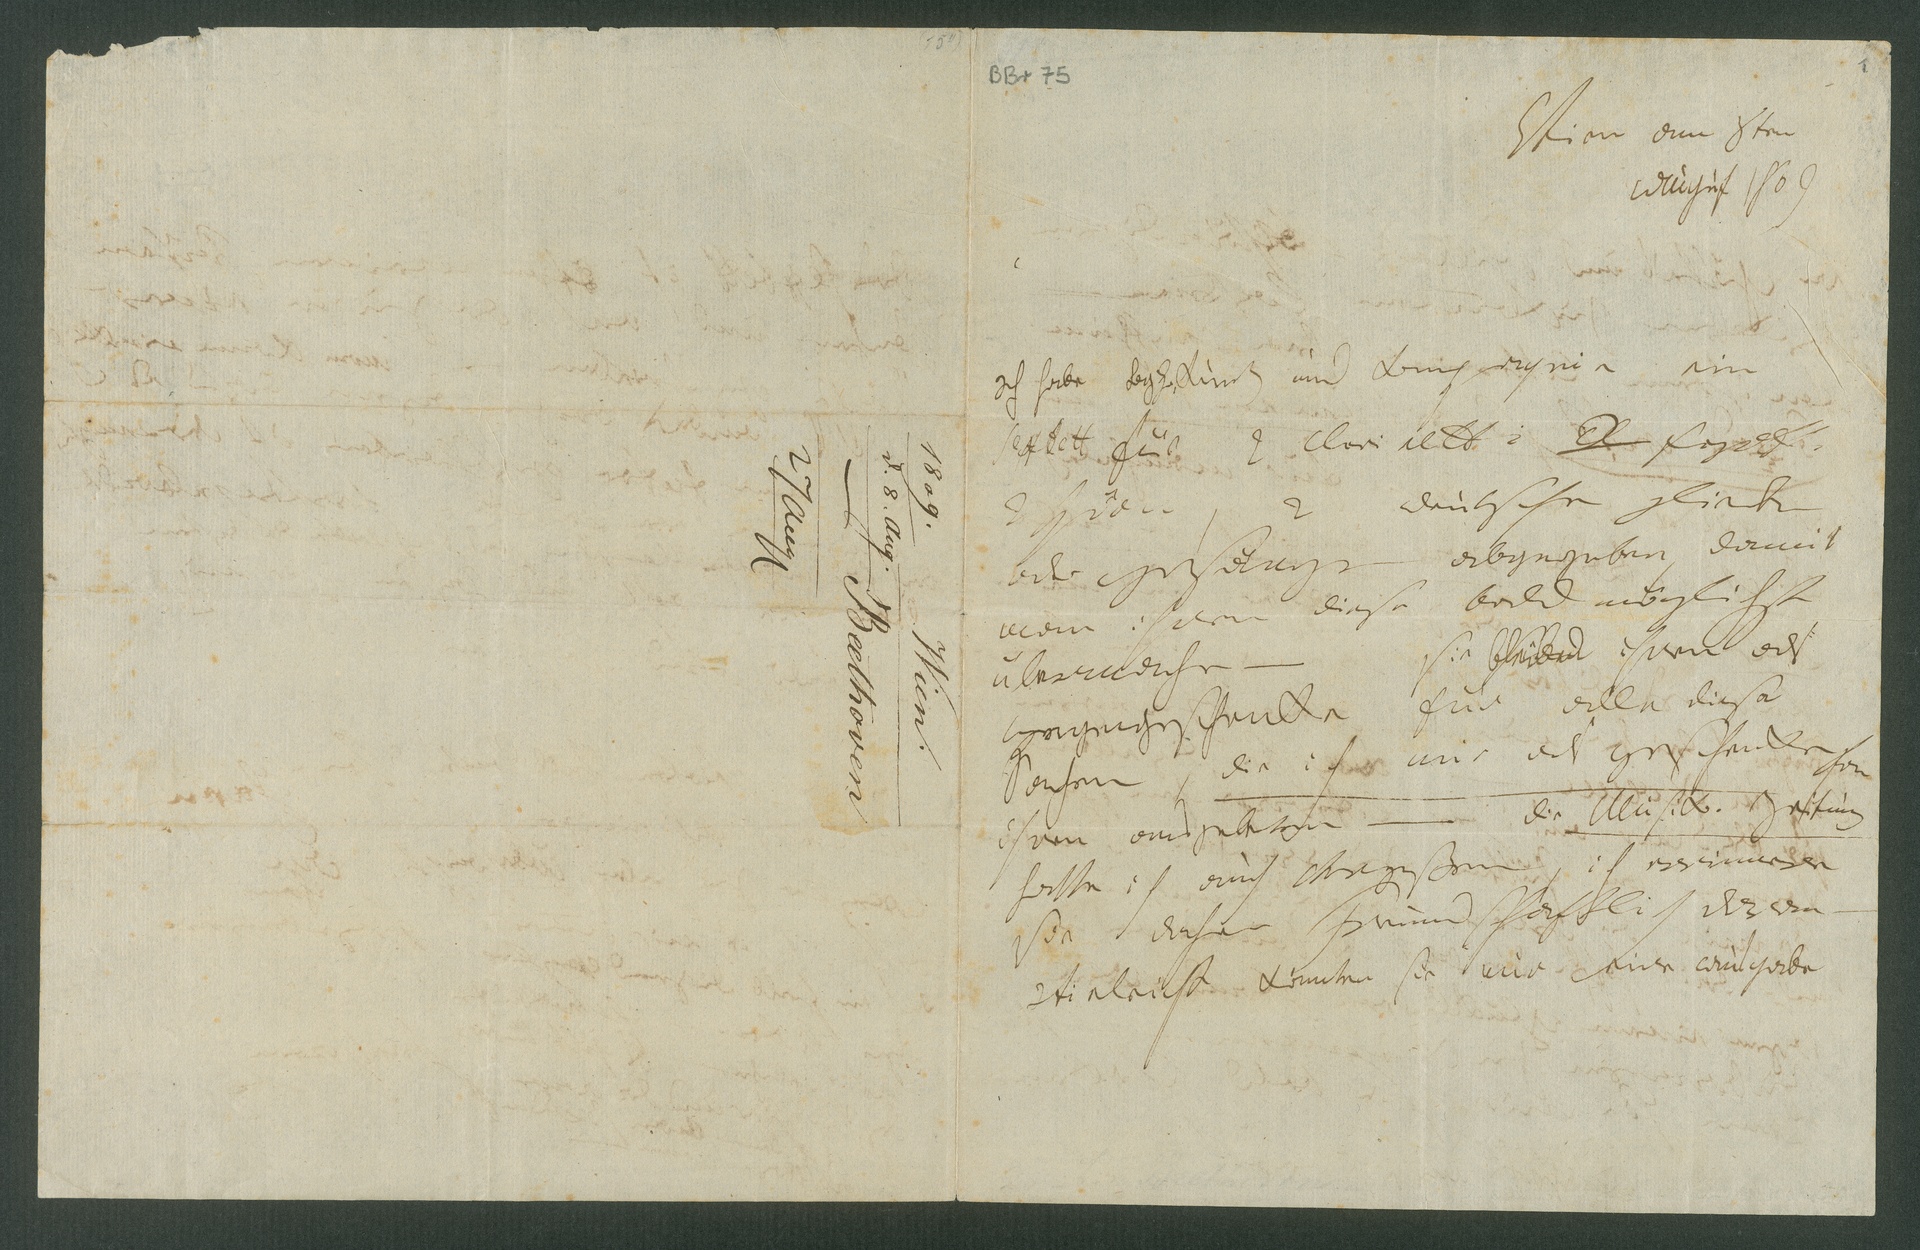 BBr 75
1
Wien am 8ten
August 1809
ich habe bey Kunz und Kompagnie ein
sextett für 2 Clarinetti 2 Fagotti
2 Horn, 2 deutsche Lieder
oder gesänge abgegeben, damit
man ihnen diese bald möglichst
übermache — sie bleiben ihnen als
gegengeschenke für alle diese
Sachen, die ich mir als geschenke von
ihnen ausgebeten — die Musik. Zeitung
hatte ich auch vergessen, ich erinnere
sie daher freundschaftlich daran —
Vieleicht könnten sie mir eine ausgabe
1809. Wien.
d. 8. Aug.
— Beethoven
27 Aug